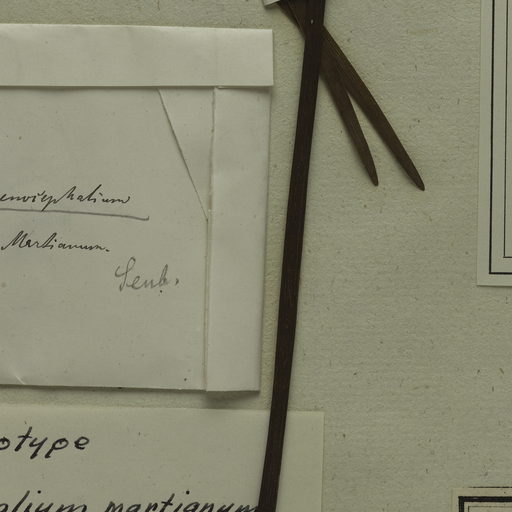 enocephalium
Martianum.
Seub.
otype
alium martianum